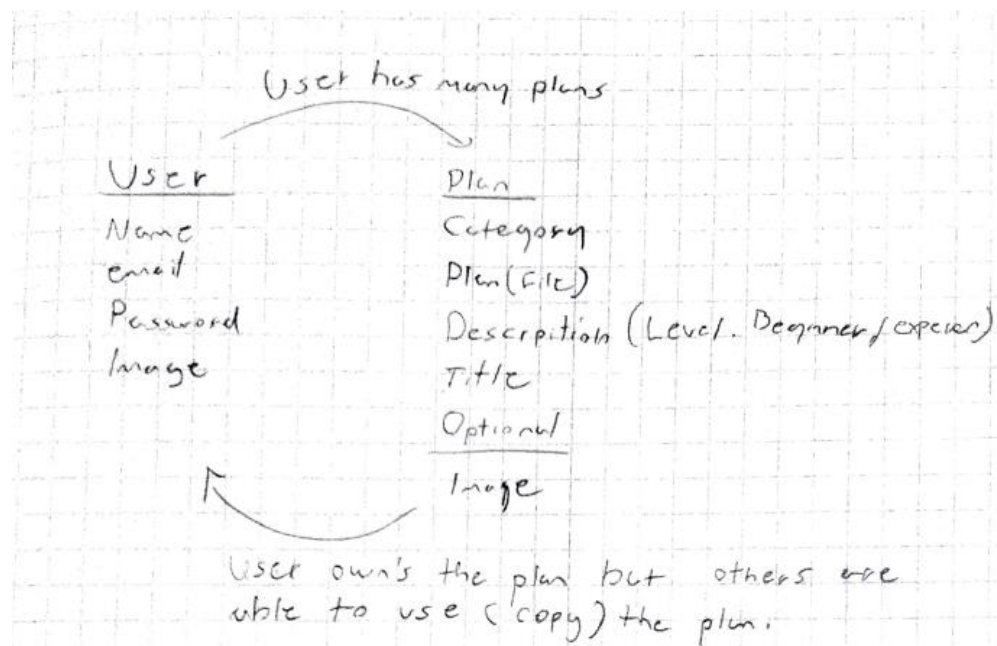 User has many plans
User
Name
email
Password
Image
Plan
Category
Plan (File)
Descrpition (Level. Beginner/
Title
Optional
Image
User own's the plan but others are
able to use (copy) the plan.